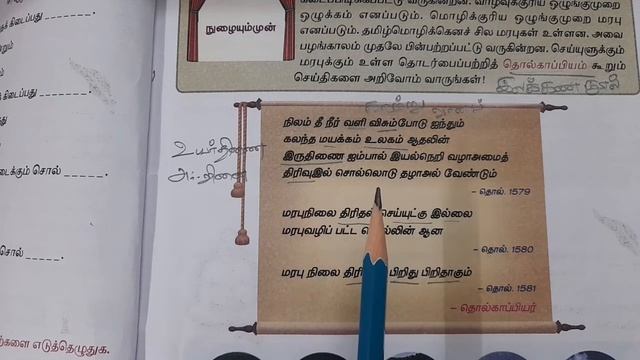 கிடைப்பது _______.
கிடைப்பது _______.
டைக்கும் சொல் _______.
சொல் _______.
ற்களை எடுத்தெழுதுக.
நுழையுமுன்
ஒழுக்கம் எனப்படும். மொழிக்குரிய ஒழுங்குமுறை மரபு
எனப்படும். தமிழ்மொழிக்கெனச் சில மரபுகள் உள்ளன. அவை
பழங்காலம் முதலே பின்பற்றப்பட்டு வருகின்றன. செய்யுளுக்கும்
மரபுக்கும் உள்ள தொடர்பைப்பற்றித் தொல்காப்பியம் கூறும்
செய்திகளை அறிவோம் வாருங்கள்!
இலக்கண நூல்
உயர்திணை
அஃறிணை
நிலம் தீ நீர் வளி விசும்போடு ஐந்தும்
கலந்த மயக்கம் உலகம் ஆதலின்
இருதிணை ஐம்பால் இயல்நெறி வழாஅமைத்
திரிவுஇல் சொல்லொடு தழாஅல் வேண்டும்
– தொல். 1579
மரபுநிலை திரிதல் செய்யுட்கு இல்லை
மரபுவழிப் பட்ட சொல்லின் ஆன
– தொல். 1580
மரபு நிலை பிறிது பிறிதாகும்
– தொல். 1581
– தொல்காப்பியர்